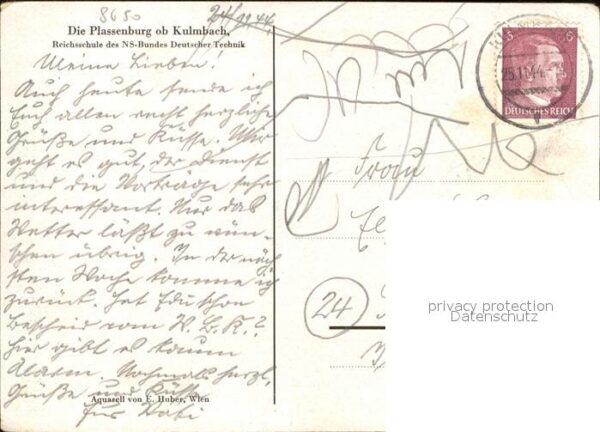 8650
24/11 44
Die Plassenburg ob Kulmbach,
Reichsschule des NS-Bundes Deutscher Technik
Meine Lieben!
Auch heute sende ich
Euch allen recht herzliche
Grüße und Küsse. Wir
geht es gut, der Dienst
und die Vorträge sehr
interessant. Nur das
Wetter läßt zu wün-
schen übrig. In der näch
sten Woche komme ich
zurück. Hat Edu schon
Bescheid vom W.B.K.?
Hier gibt es kaum
Alarm. Nochmals herzl.
Grüße und Küsse
Aquarell von E. Huber, Wien
25.11.44
DEUTSCHES REICH
Frau
24
privacy protection
Datenschutz